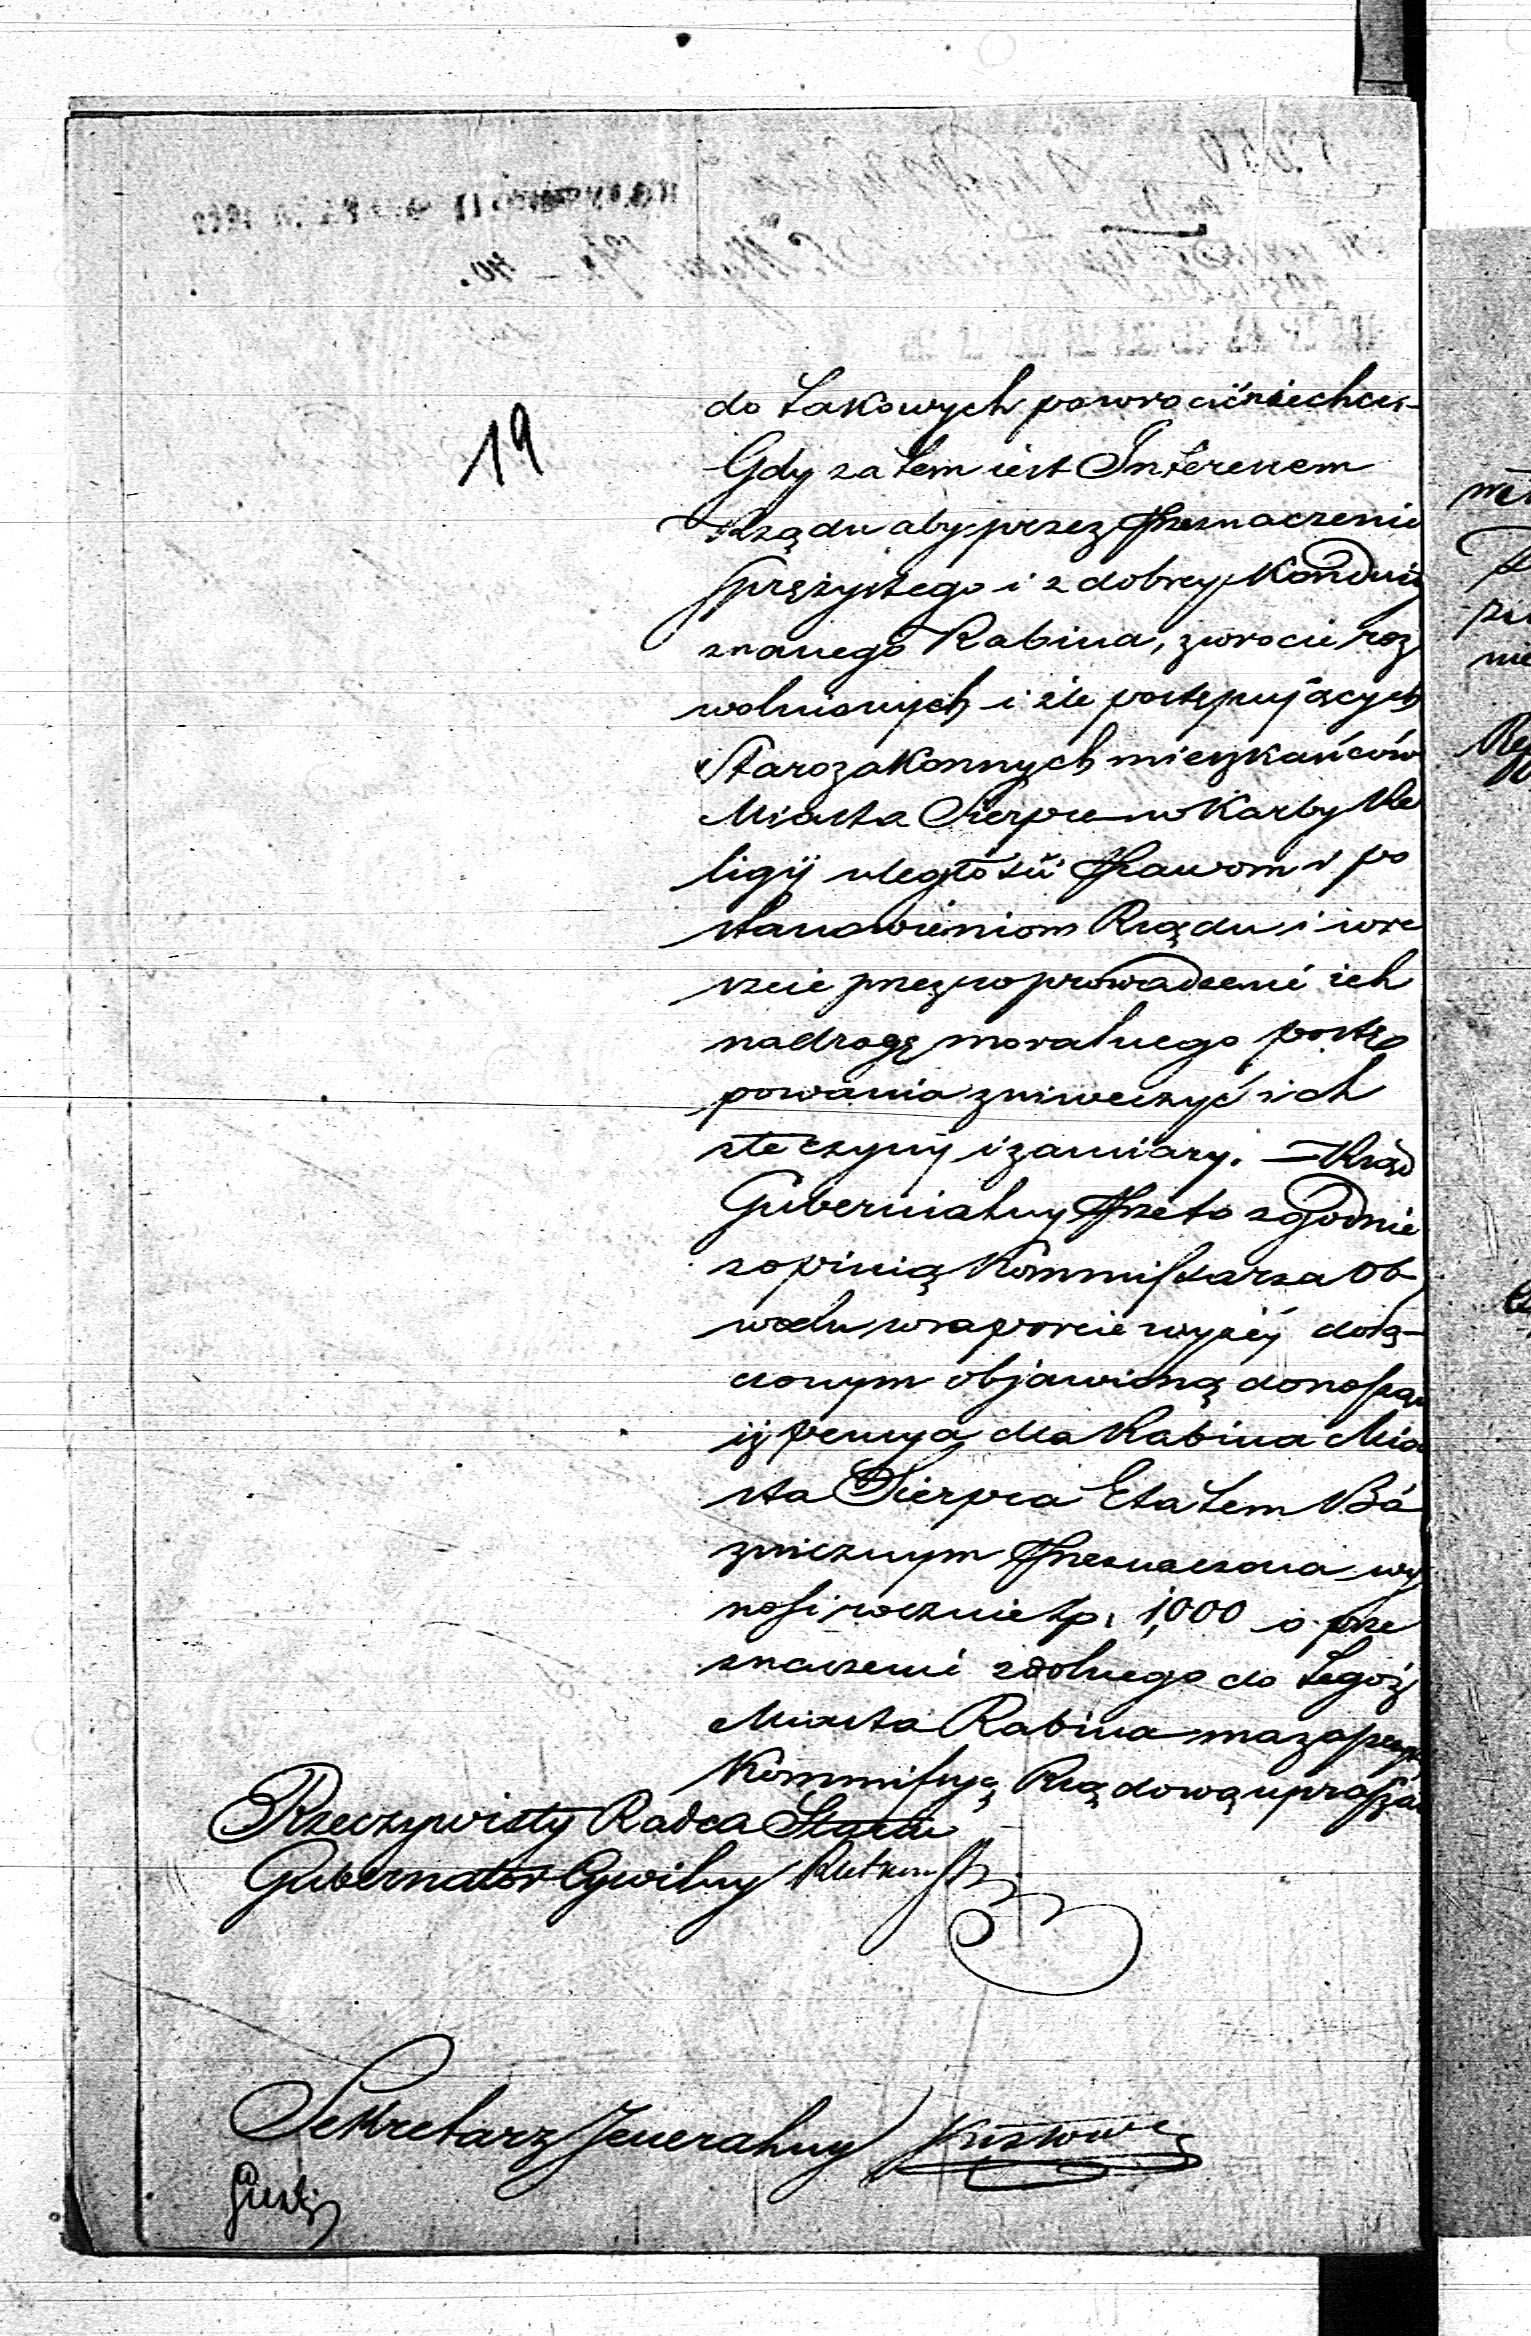 19
do takowych powrocić niechce.
Gdy zatem iest Interessem
Rządu aby przez Przeznaczenie
sprężystego i z dobrey Konduity
znanego Rabina, zwrocić roz
wolnionych i źle postępujących
Starozakonnych mieszkańców
Miasta Sierpca w Karby Re
ligij uległości Prawom i po
stanowieniom Rządu i wre
szcie przez wprowadzenie ich
na drogę moralnego postę
powania zniweczyć ich
złe czyny i zamiary. – Rząd
Gubernialny Przeto zgodnie
z opinią Kommissarza Ob
wodu w raporcie wyżéj dołą-
czonym objawioną donosząc
iż pensya dla Rabina Mia
sta Sierpca Etatem Bó
znicznym Przeznaczona wy
nosi rocznie Zp. 1,000 o prze
znaczenie zdolnego do tegoż
Miasta Rabina ma zaszczyt
Kommissyę Rządową upraszać
Rzeczywisty Radca Stanu
Gubernator Cywilny
Sekretarz Jeneralny